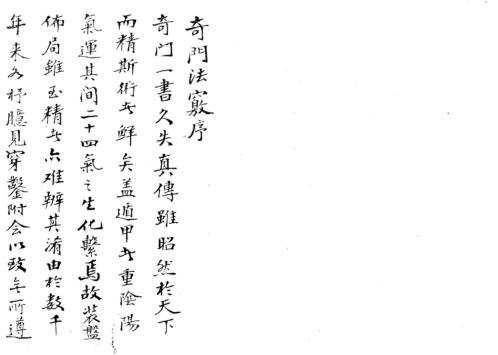 奇門法竅序
奇门一書久失真傳雖昭然於天下
而精斯術者鮮矣盖遁甲者重陰陽
氣運其间二十四氣之生化繫焉故装盤
佈局雖至精者亦难辨其淆由於數千
年来各抒臆見穿鑿附会以致无所遵